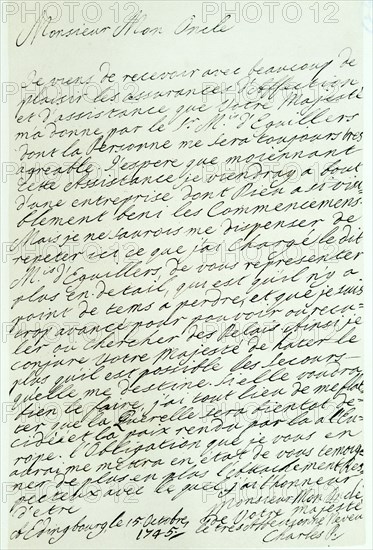 Monsieur Mon Oncle
Je viens de recevoir avec beaucoup de
plaisir les assurances d'Affection
et d'assistance que Votre Majesté
ma donné par le Sr. Mis. d'Eguillers
dont la Personne me sera toujours tres
agreable. J'espere que moiennant
cette Assistance je viendray a bout
d'une entreprise dont Dieu a si visi
blement beni les Commencemens.
Mais je ne saurois me dispenser de
repeter ici ce que j'ai Chargé le dit
Mis. d'Eguillers, de vous representer
plus en detail, qui est qu'il n'y a
point de tems a perdre, et que je suis
trop avancé pour pouvoir ou recu-
ler ou chercher des Relais. Ainsi je
conjure Votre Majesté de hater le
plus qu'il est possible les Secours
quelle me destine. Si elle voudra
bien le faire, j'ai tout lieu de me fla
ter que la Querelle sera bientot de-
cidée et la paix rendu par la a l'Eu-
rope. l'Obligation que je vous en
aurai me mettra en etat de vous temoig
ner de plus en plus l'attachement Res
pectueux avec le quel j'ai l'honneur
d'etre
Monsieur Mon Oncle
de Votre Majesté
a Edingbourg le 15 Octobre
1745
le tres affectionné Neveu
Charles P.
PHOTO12